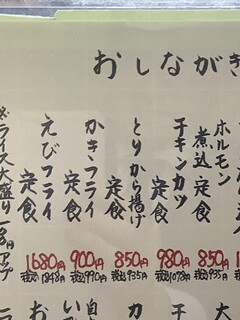 おしながき
ホルモン
煮込定食
850円
税込935円
チキンカツ
定食
980円
税込1078円
とりから揚げ
定食
850円
税込935円
かきフライ
定食
900円
税込990円
えびフライ
定食
1680円
税込1848円
ライス大盛り